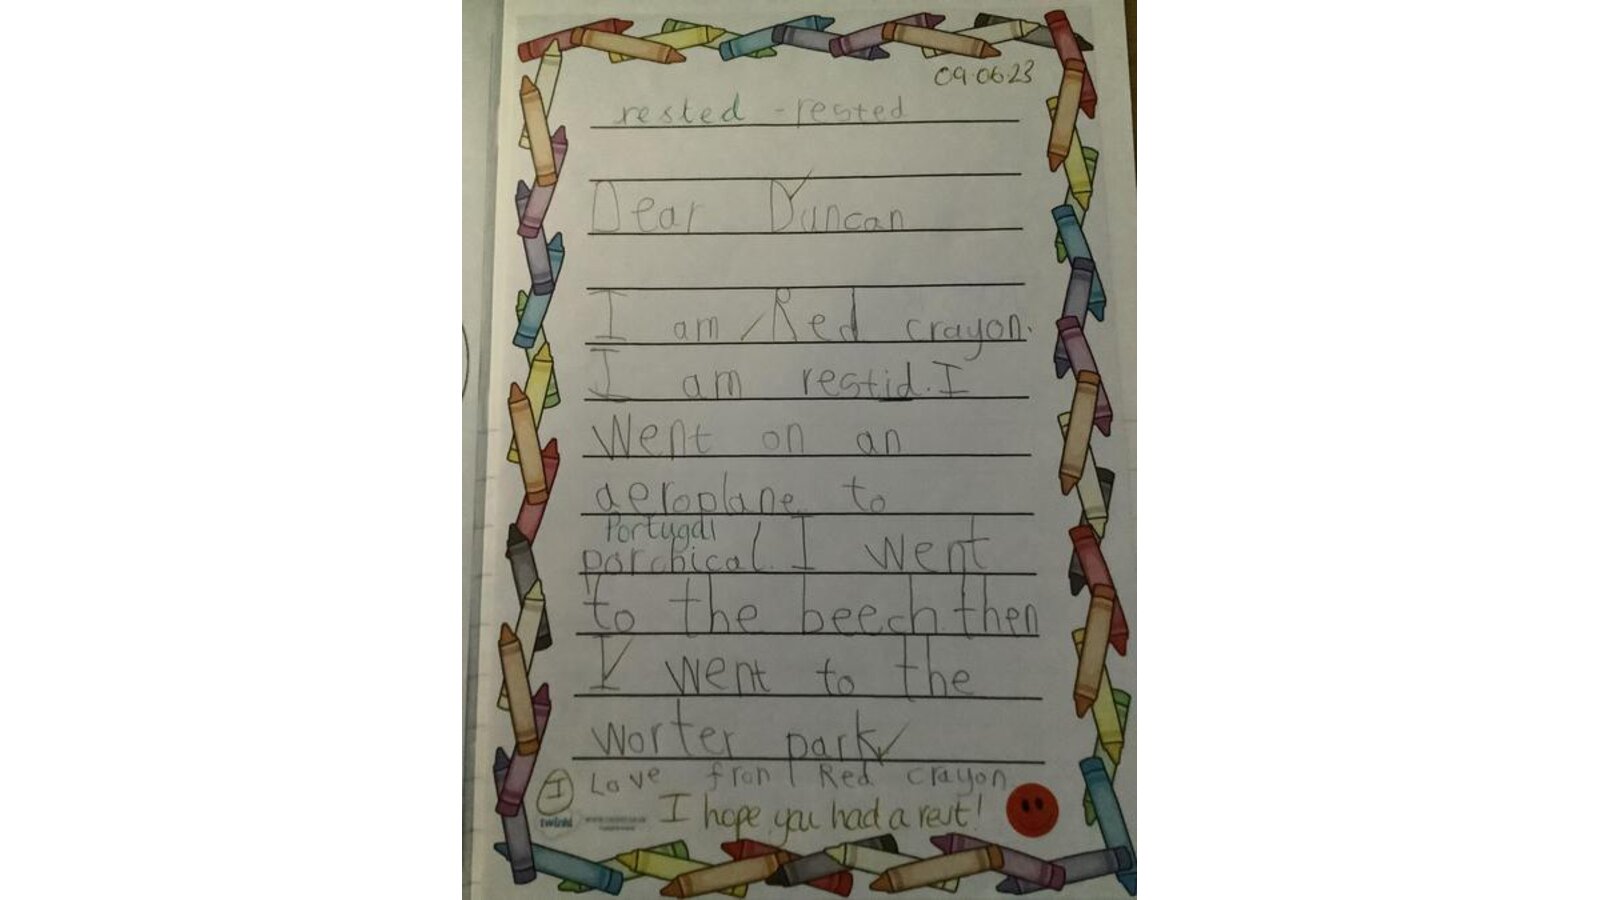 09.06.23
rested - rested
Dear Duncan
I am Red crayon.
I am restid. I
went on an
aeroplane to
Portugal
porchical. I went
to the beech. then
I went to the
worter park
Love fron Red crayon
I
I hope you had a rest!
twinkl